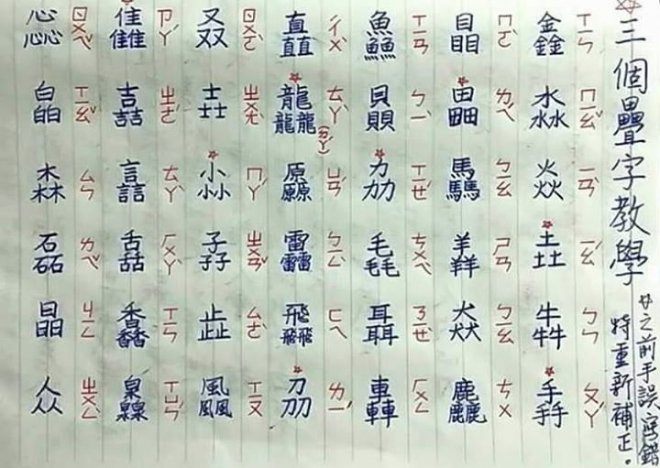 三個疊字教學
☆之前手誤寫錯
特重新補正。
鑫 ㄒㄧㄣ 淼 ㄇㄧㄠˇ 焱 ㄧㄢˋ 垚 ㄧㄠˊ 犇 ㄅㄣ 掱 ㄆㄚˊ
瞐 ㄇㄛˋ 畾 ㄌㄟˊ 驫 ㄅㄧㄠ 羴 ㄕㄢ 猋 ㄅㄧㄠ 麤 ㄘㄨ
鱻 ㄒㄧㄢ 贔 ㄅㄧˋ 劦 ㄒㄧㄝˊ 毳 ㄘㄨㄟˋ 聶 ㄋㄧㄝˋ 轟 ㄏㄨㄥ
矗 ㄔㄨˋ 龘 ㄊㄚˋ (ㄉㄚˊ) 厵 ㄩㄢˊ 靐 ㄅㄧㄥˋ 飝 ㄈㄟ 刕 ㄌㄧˊ
叒 ㄖㄨㄛˋ 壵 ㄓㄨㄤˋ 尛 ㄇㄚˊ 孨 ㄓㄨㄢˇ 歮 ㄙㄜˋ 飍 ㄒㄧㄡ
雥 ㄗㄚˊ 嚞 ㄓㄜˊ 譶 ㄊㄚˋ 舙 ㄏㄨㄚˋ 馫 ㄒㄧㄣ 灥
惢 ㄖㄨㄟˇ 皛 ㄒㄧㄠˇ 森 ㄙㄣ 磊 ㄌㄟˇ 晶 ㄐㄧㄥ 众 ㄓㄨㄥˋ